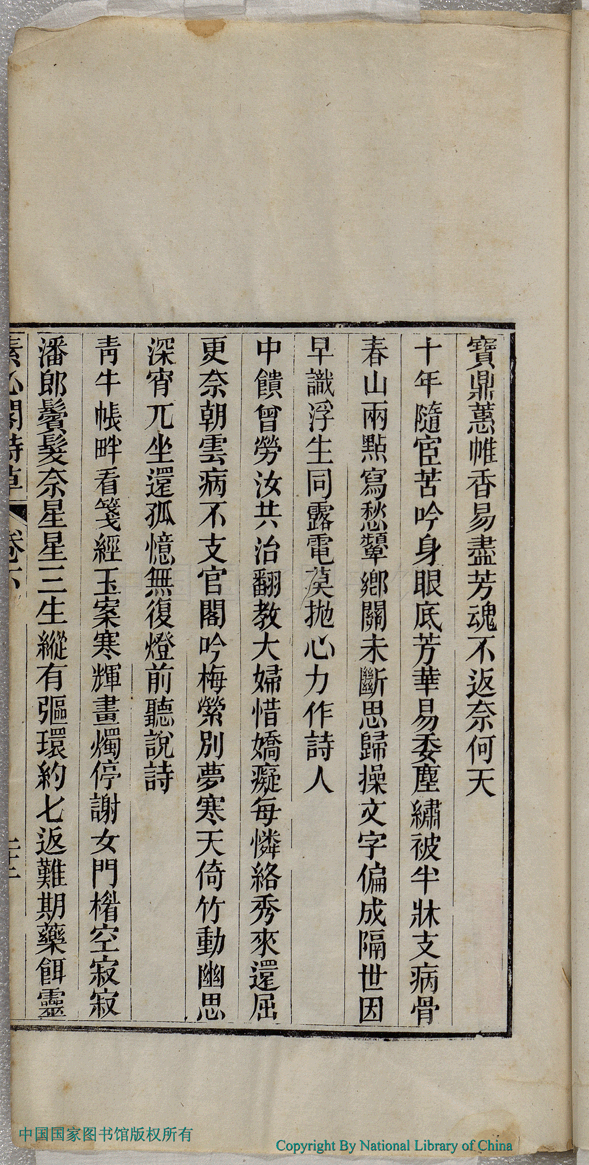 寶鼎蕙帷香易盡芳魂不返奈何天
十年隨宦苦吟身眼底芳華易委塵繡被半牀支病骨
春山兩點寫愁顰鄉關未斷思歸操文字偏成隔世因
早識浮生同露電莫拋心力作詩人
中饋曾勞汝共治翻教大婦惜嬌癡每憐絡秀來還屈
更奈朝雲病不支官閣吟梅縈別夢寒天倚竹動幽思
深宵兀坐還孤憶無復燈前聽說詩
青牛帳畔看箋經玉案寒輝畫燭停謝女門楣空寂寂
潘郎鬢髮奈星星三生縱有彄環約七返難期藥餌靈
閣詩草 卷六 二十二
中国国家图书馆版权所有
Copyright By National Library of China